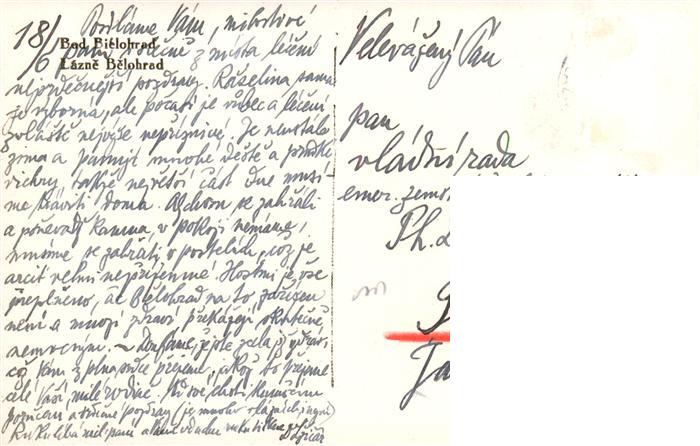 18/6
Bad Bielohrad
Lázně Bělohrad
Posíláme Vám, milostivé
z místa léčení
nejvděčnější pozdravy. Rašelina sama
je výborná, ale počasí je vůbec a léčení
zvláště nejvýše nepříznivé. Je neustále
zima a mnohé deště a prudké
vichry, takže největší část dne musí-
me tráviti doma. Abychom se zahřáli
a poněvadž kamna v pokoji nemáme,
musíme se zahřáti v postelích, což je
arciť velmi nepříjemné. Hostmi je vše
přeplněno, ač Bělohrad na to zařízen
není a mnozí zdraví překážejí skutečně
nemocným. – Doufáme, že jste zcela zdráv,
což Vám z plna srdce přejeme, jakož to přejeme
celé Vaší milé rodině.
a srdečné pozdravy
Velevážený Pán
pan
vládní rada
emer. zem
Ph.